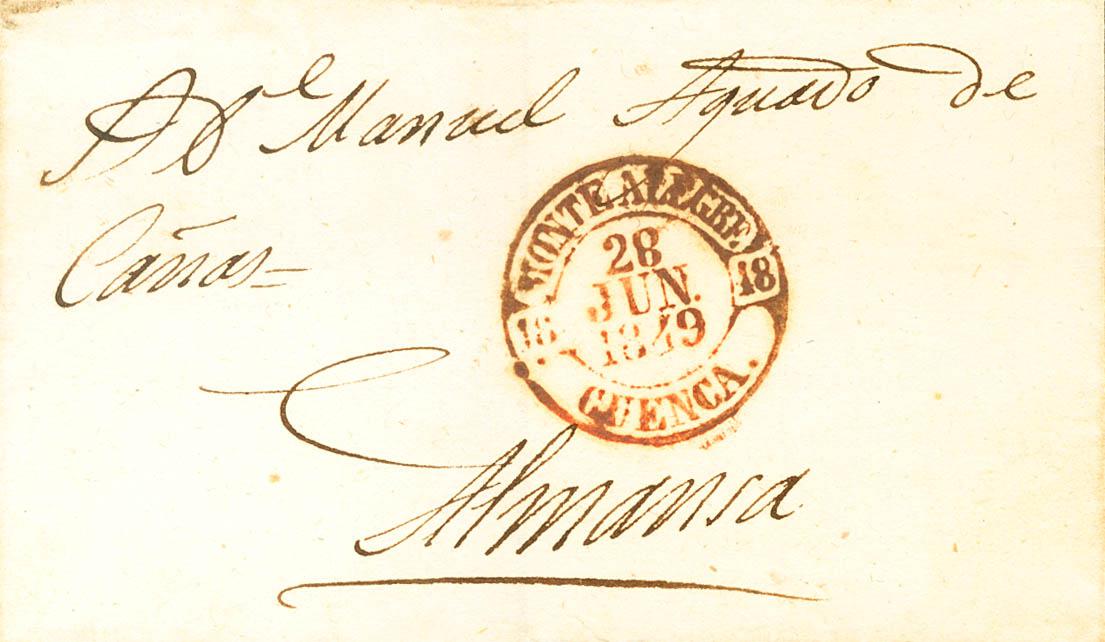 A Dn. Manuel Aguado de
Cañas=
MONTE ALEGRE.
18
28
JUN.
1849
18
CUENCA.
Almansa